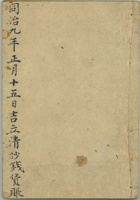 同治九年正月十五日吉立清抄錢債賬